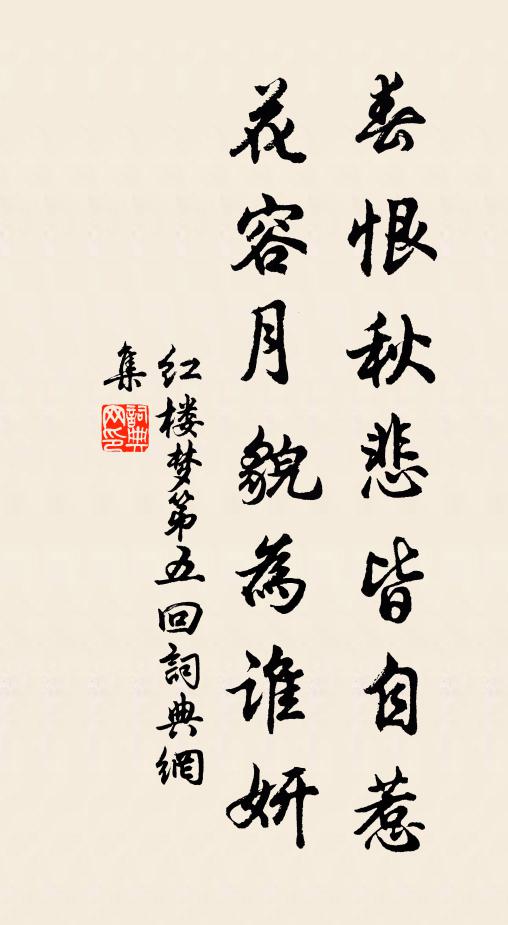 春恨秋悲皆自惹
花容月貌為谁妍
红楼梦第五回詞典網
集
詞典网印